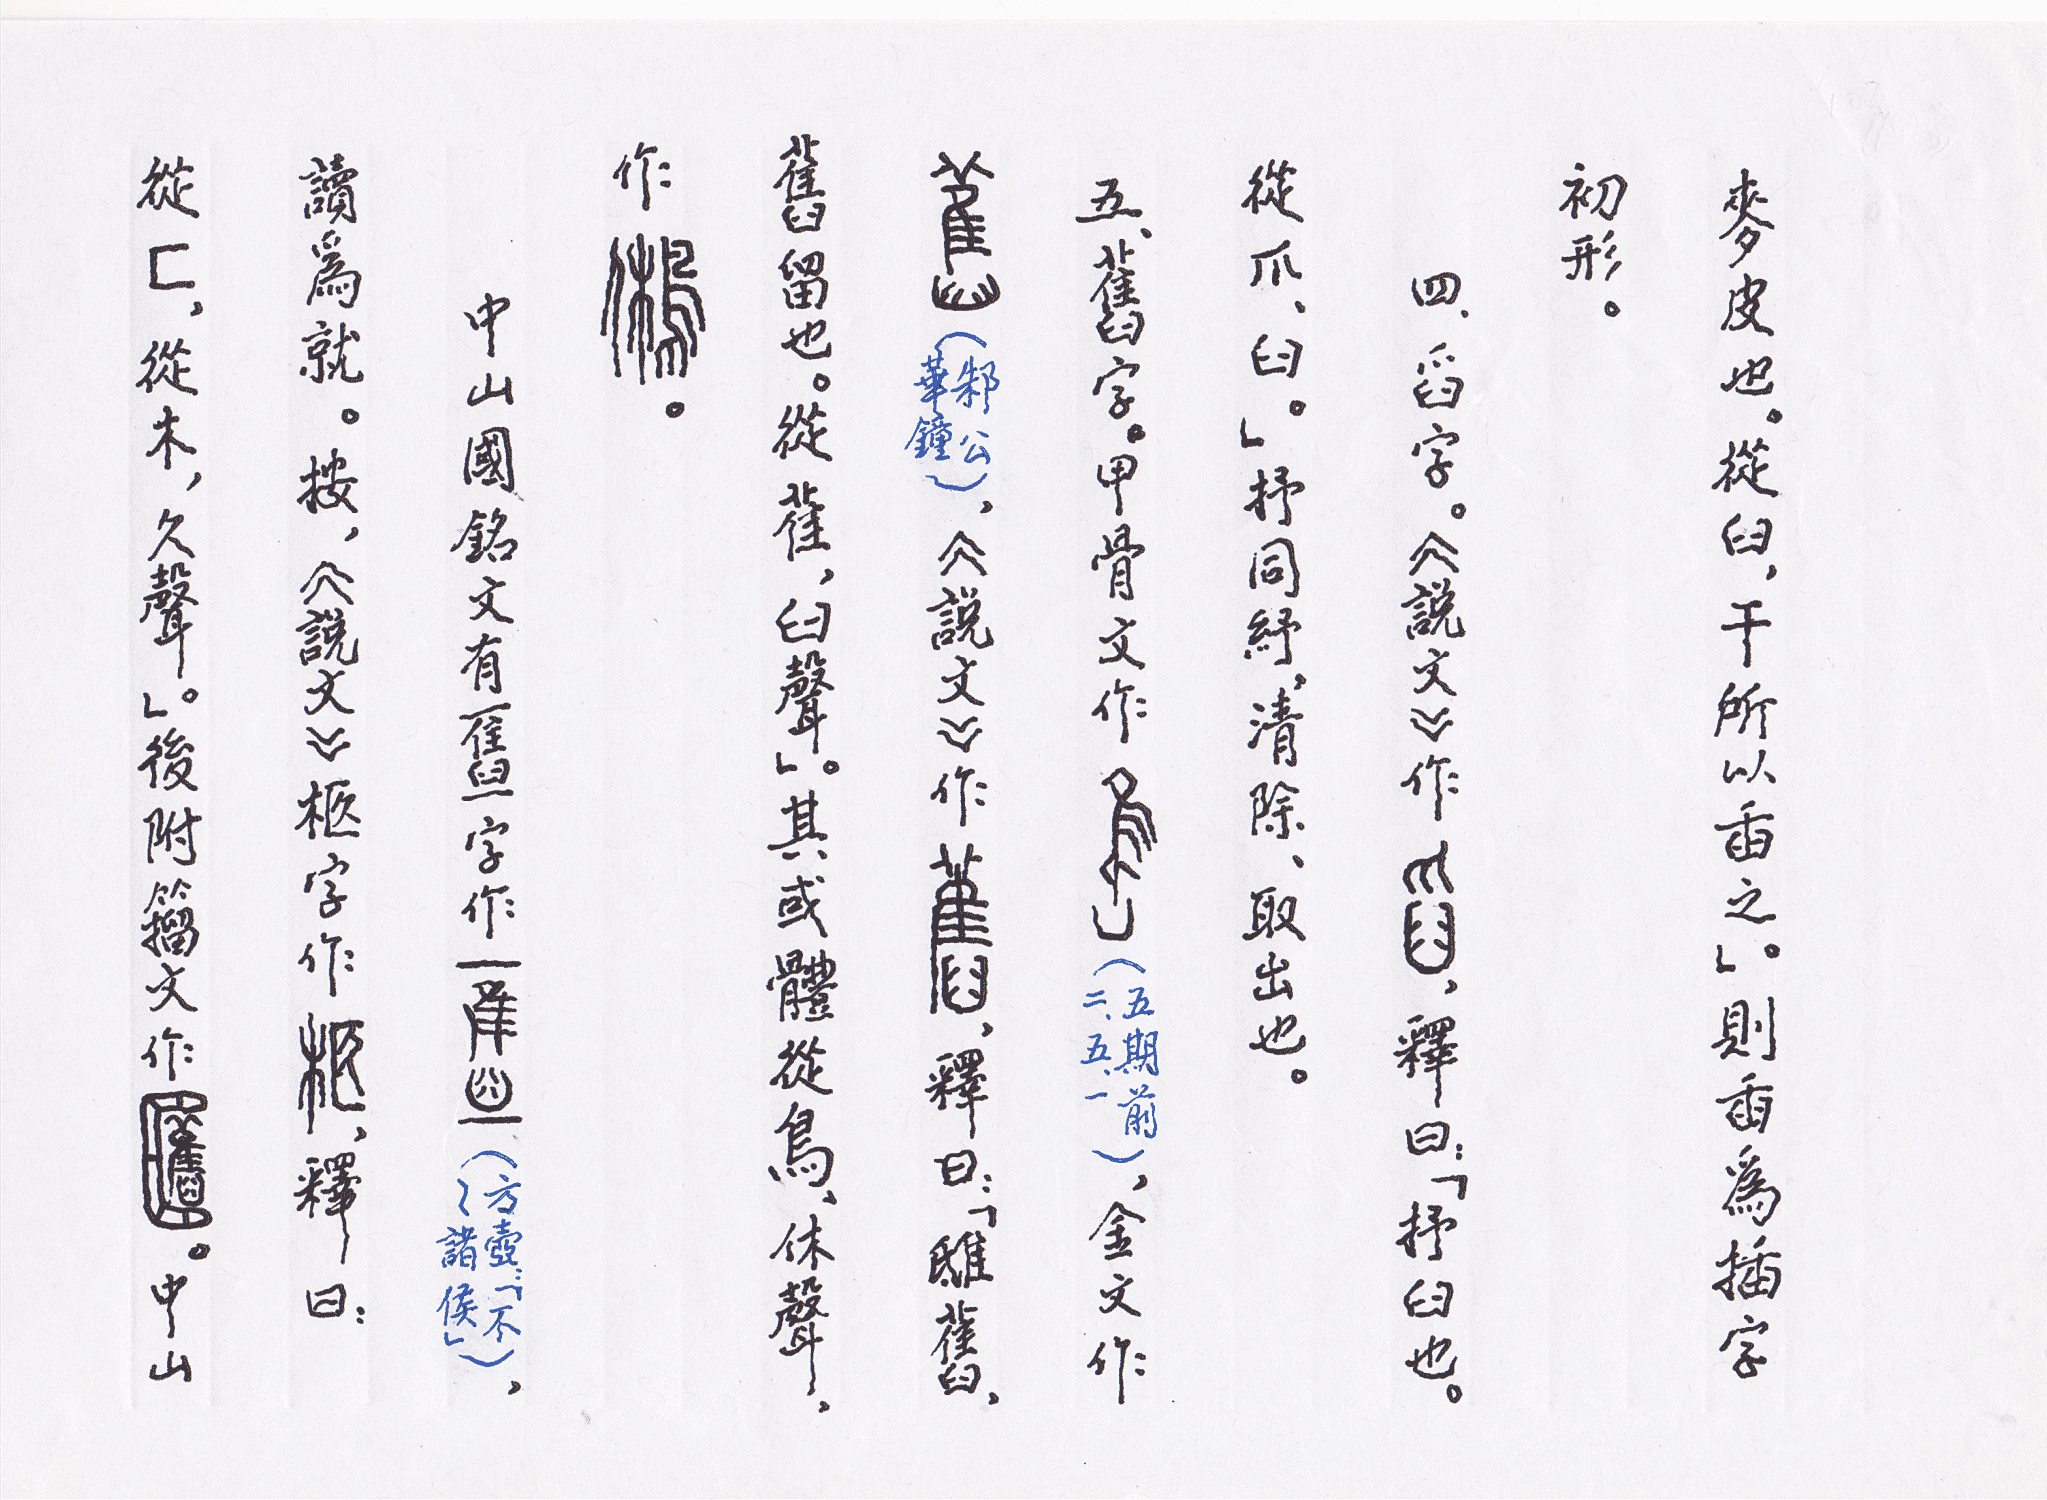 麥皮也。從臼,干所以臿之」。則臿爲插字
初形。
四、舀字。《説文》作,釋曰:「抒臼也。
從爪、臼。」抒同紓,清除、取出也。
五、舊字。甲骨文作(五期前二、五、一),金文作
(邾公華鐘),《説文》作,釋曰:「舊,
舊留也。從萑,臼聲」。其或體從鳥、休聲,
作。
中山國銘文有字作(方壺:「不〻諸侯」),
讀爲就。按,《説文》柩字作,釋曰:
從匚,從木,久聲」。後附籀文作。中山